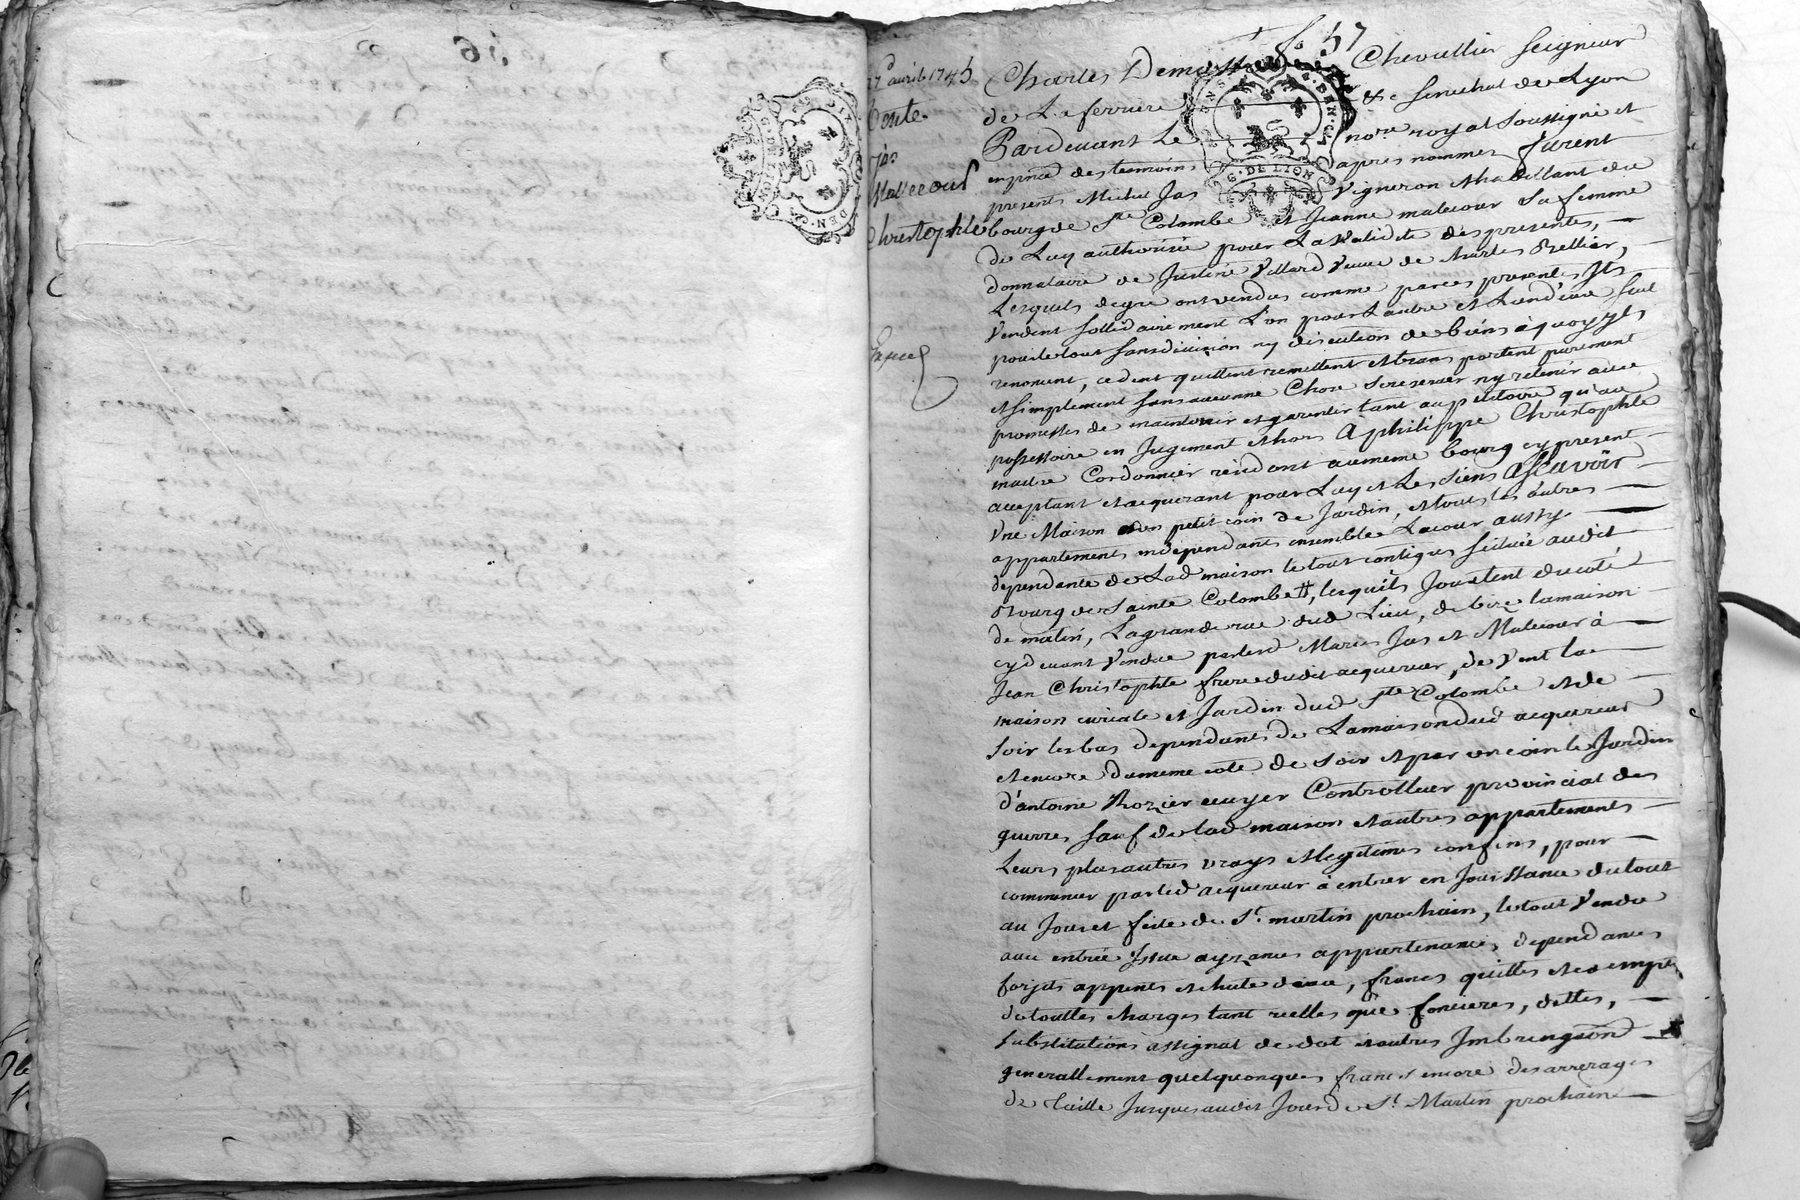 f.o 57
27 avril 1745
Vente
Jas
Mallecour
Christophle
Charles Demasso Chevallier Seigneur
de La ferriere &c Senechal de Lyon
Pardevant Le no.re royal soussigné et
en pnce des temoins apres nommes furent
presents Michel Jas Vigneron Habittant du
bourg de Ste Colombe et Jeanne malecour Sa femme
de Luy authorisée pour La Validité des presentes,
donnataire de Justine Villard Veuve de charles Bellier,
Lesquels de gré ont vendus comme par ces presentes Ils
Vendent sollidairement L'un pour L'autre et L'un d'eux seul
pour le tout sans division ny discution de biens à quoy ils
renoncent, cedent quittent remettent et transportent purement
et simplement sans aucunne Chose se reserver ny retenir avec
promesses de maintenir et garentir tant au petitoire qu'au
possessoire en Jugement et hors A philippe Christophle
maitre Cordonnier residant au meme bourg cy present
acceptant et acquerant pour Luy et Les siens Asçavoir
Une Maison et un petit coin de Jardin, et tous les autres
appartements independants ensemble La cour aussy
dependante de Lad maison le tout contigus scituée audit
Bourg de Sainte Colombe, lesquels Joustent du coté
de matin, La grande rue dud Lieu, de bize la maison
cy devant Vendue par lesd Maries Jas et Malecour à
Jean Christophle frere dudit acquereur, de Vent la
maison curiale et Jardin dud Ste Colombe et de
soir les bas dependants de La maison dud acquereur
et encore du meme coté de soir et par un coin le Jardin
d'antoine Rozier ecuyer Controlleur provincial des
guerres sauf de lad maison et autres appartements
Leurs plus autres vrays et legitimes confins, pour
commencer par led acquereur à entrer en Jouissance du tout
au Jour et feste de St. martin prochain, le tout Vendu
avec entrée Issue aysances appartenances, dependances
forjets appents et chute d'eau, francs quittes et exempts
de touttes charges tant reelles que foncieres, dettes,
substitutions assignat de dot et autres Imbringuion
generallement quelquonques francs encore des arrerages
de taille Jusques audit Jour de St. Martin prochain